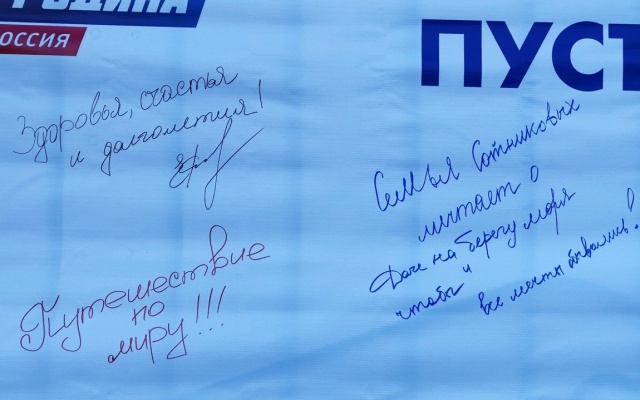 РОДИНА
РОССИЯ
ПУСТ
Здоровья, счастья
и долголетия!
Семья Сотниковых
мечтает о
Даче на берегу моря
и
чтобы все мечты сбывались!
Путешествие
по
миру!!!